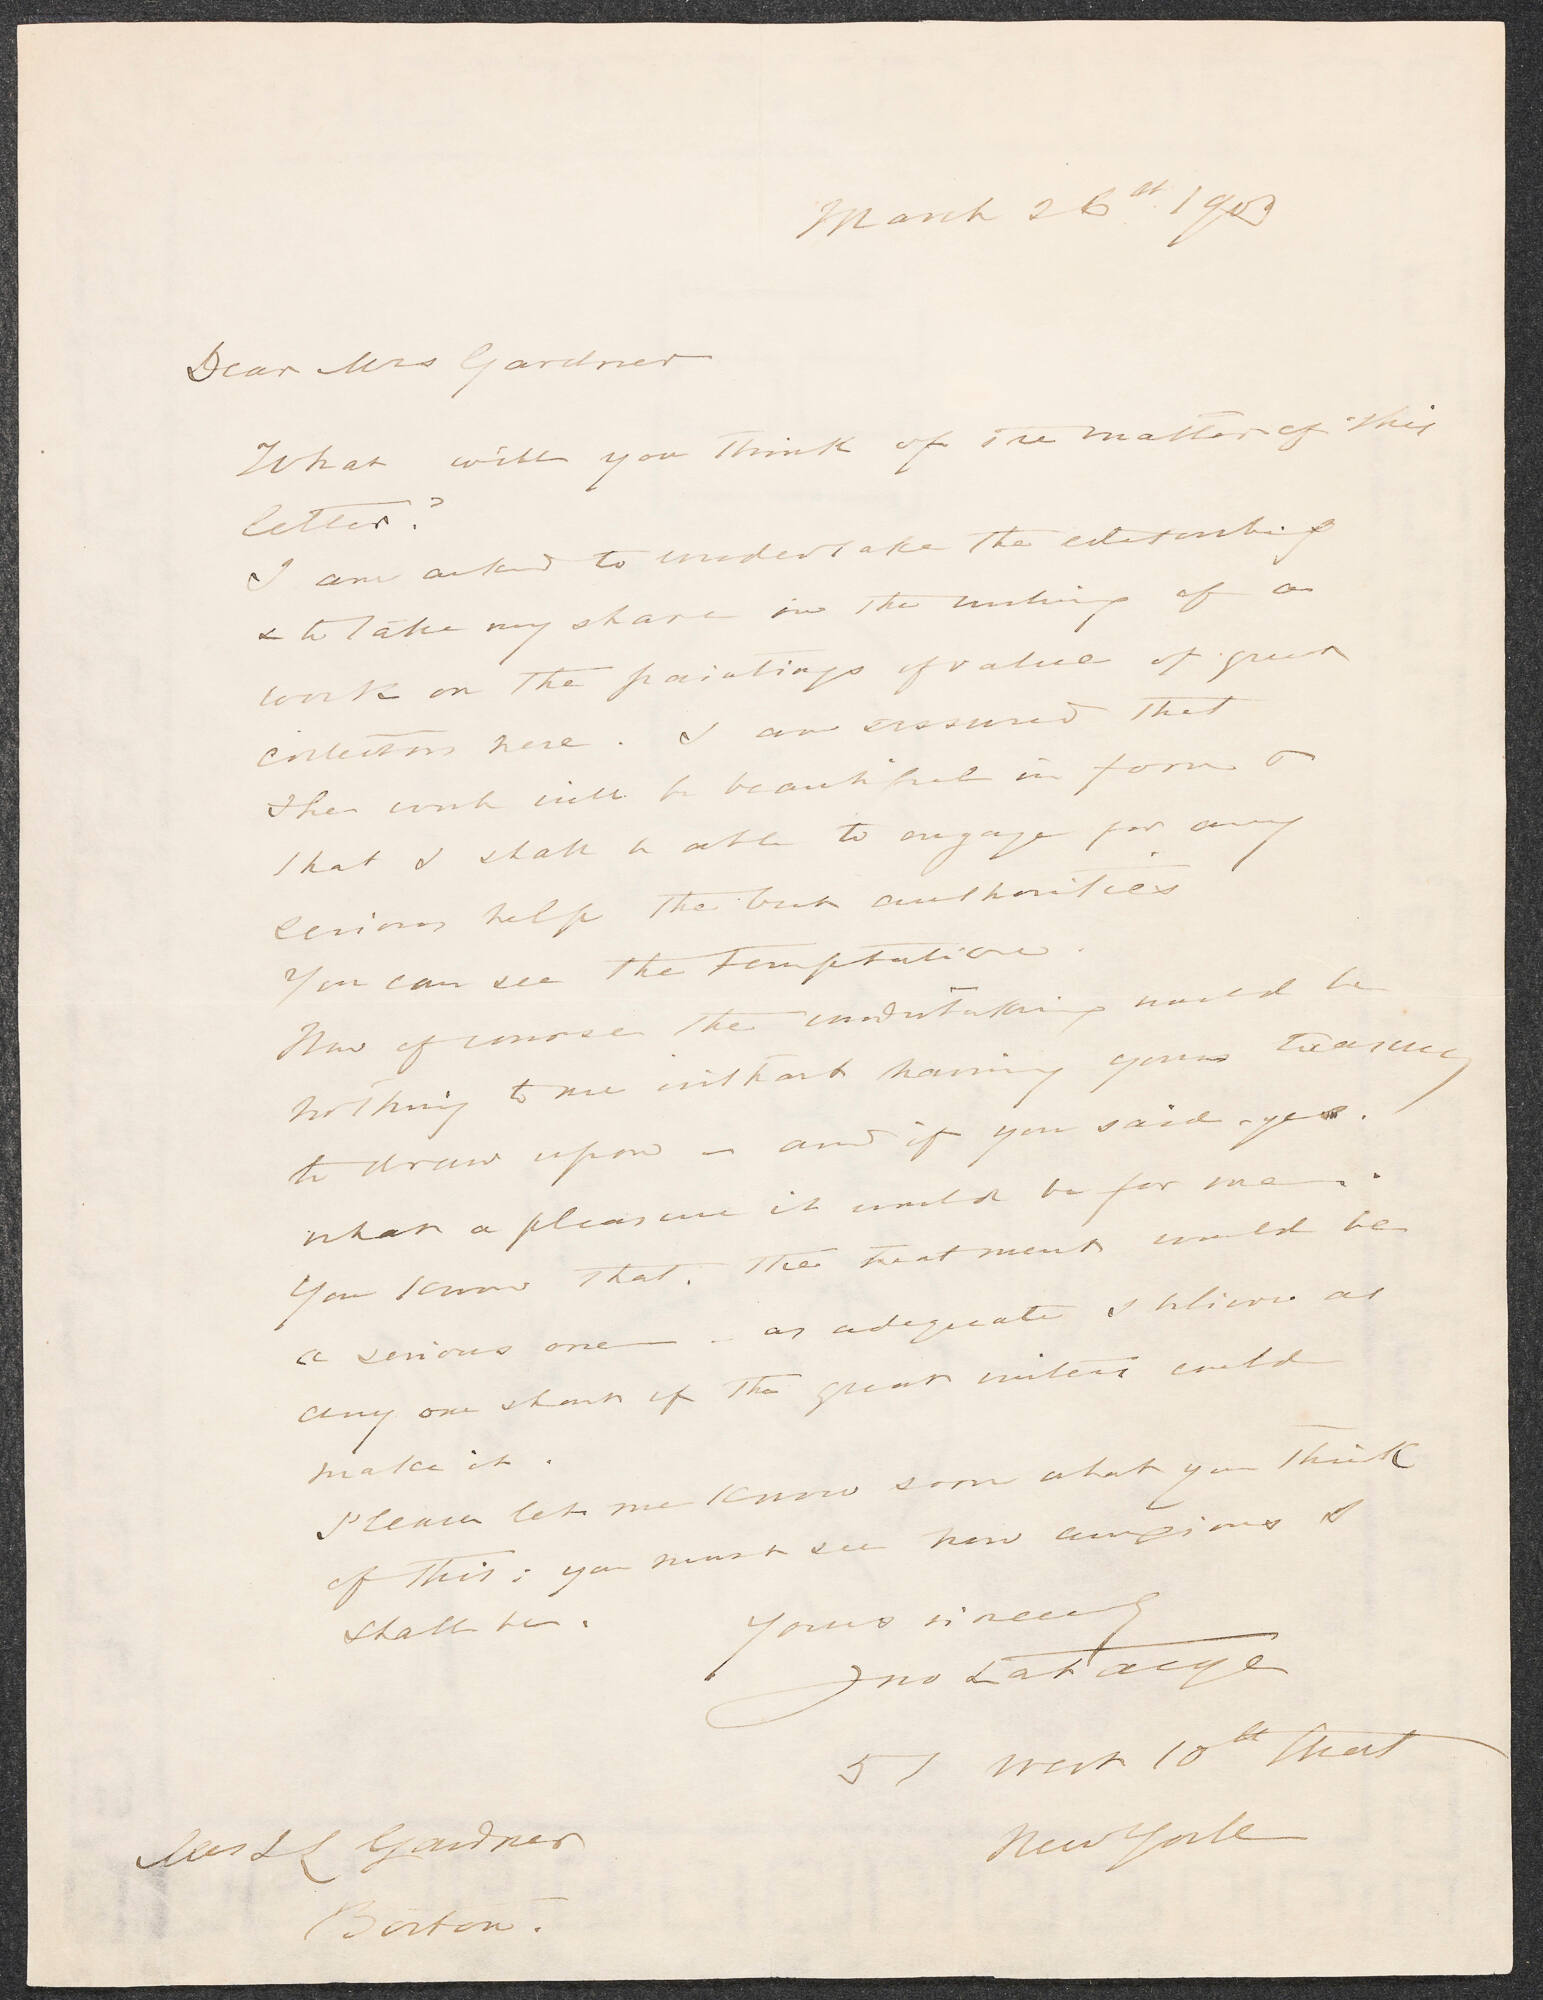 March 26th 1903
Dear Mrs Gardner
What will you think of the matter of this
letter?
I am asked to undertake the editorship
& to take my share in the writing of a
work on the paintings of value of great
collectors here. I am assured that
the work will be beautiful in form &
that I shall be able to engage for any
serious help the best authorities
You can see the temptation.
Now of course the undertaking would be
nothing to me without having your treasures
to draw upon — and if you said yes.
what a pleasure it would be for me.
You know that. The treatment would be
a serious one — as adequate I believe as
any one short of the great writers could
make it.
Please let me know soon what you think
of this; you must see how anxious I
shall be.
Yours sincerely
Jno LaFarge
51 West 10th Street
New York
Mrs J L Gardner
Boston.